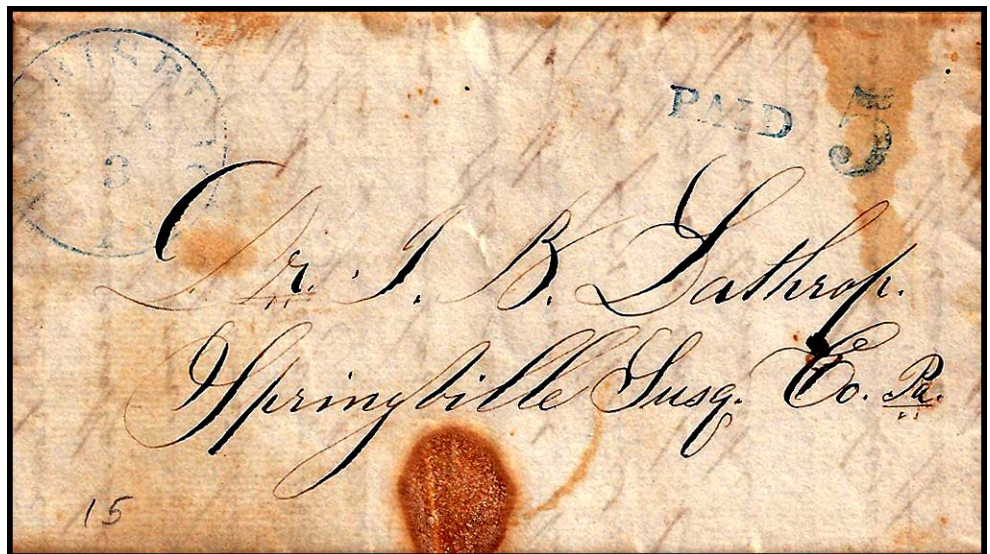 PAID 5
3
Dr. I. B. Lathrop.
Springville Susq. Co. Pa.
15